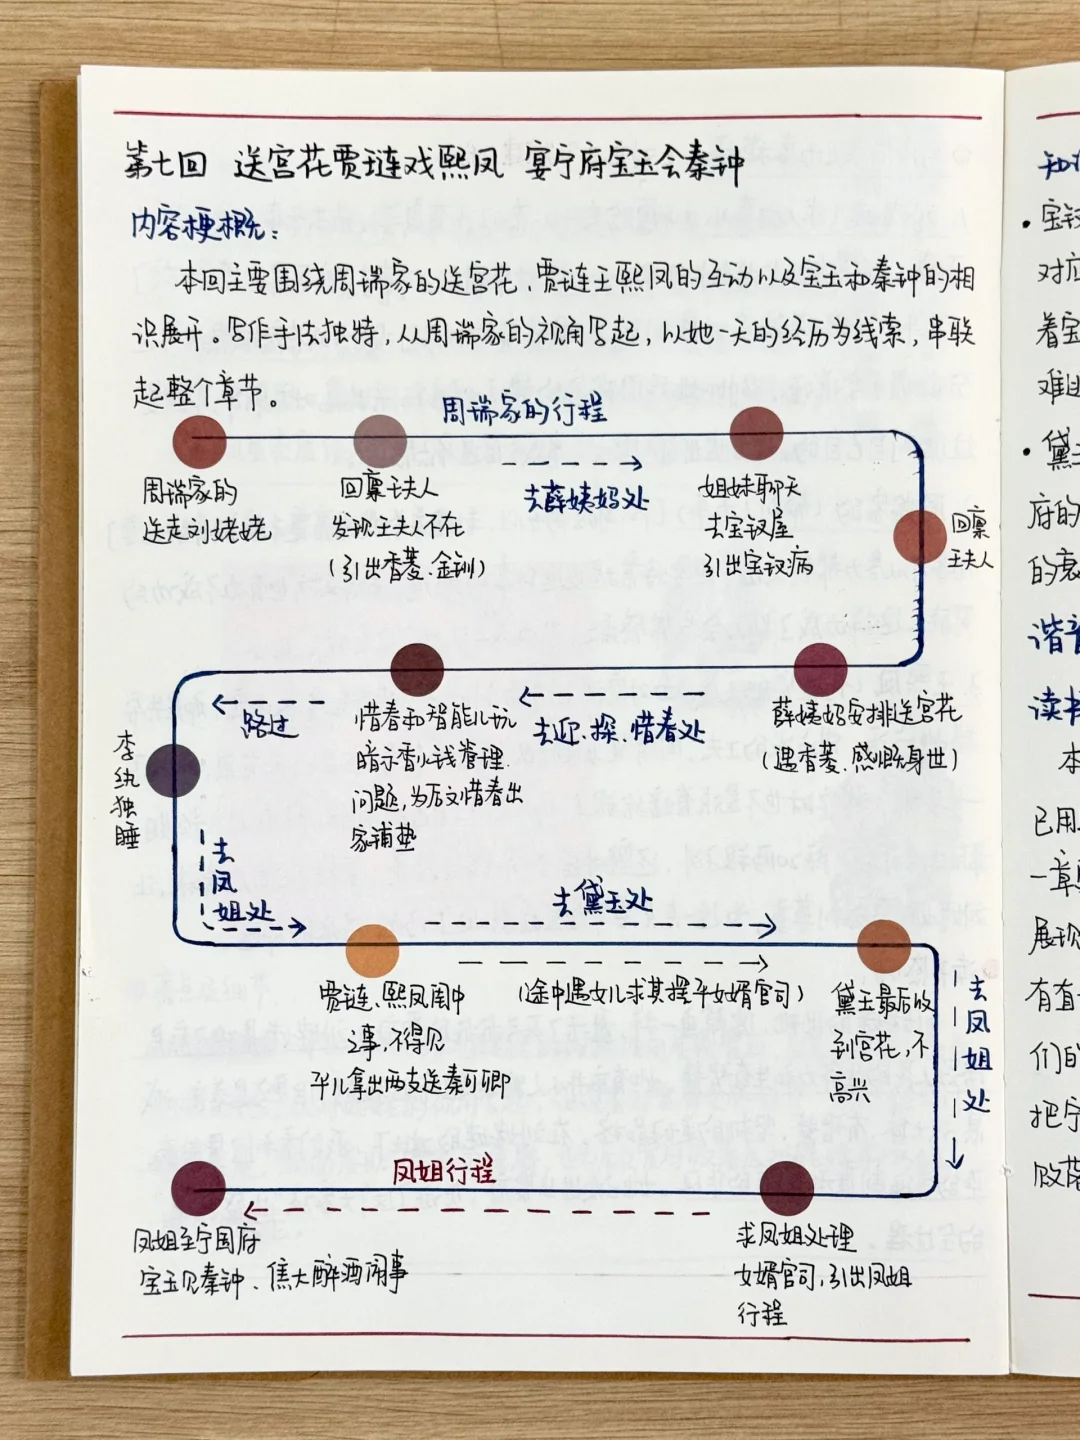 第七回 送宫花贾琏戏熙凤 宴宁府宝玉会秦钟
内容梗概：
本回主要围绕周瑞家的送宫花、贾琏王熙凤的互动以及宝玉和秦钟的相
识展开。写作手法独特，从周瑞家的视角写起，以她一天的经历为线索，串联
起整个章节。
周瑞家的行程
周瑞家的
送走刘姥姥
回禀王夫人
发现王夫人不在
（引出香菱、金钏）
去薛姨妈处
姐妹聊天
去宝钗屋
引出宝钗病
回禀
王夫人
薛姨妈安排送宫花
（遇香菱、感慨身世）
去迎、探、惜春处
惜春和智能儿玩
暗示香火钱管理
问题，为后文惜春出
家铺垫
路过
李纨独睡
去凤
姐处
贾链、熙凤闺中
之事，不得见
平儿拿出两支送秦可卿
去黛玉处
（途中遇女儿求其摆平女婿官司）
黛玉最后收
到宫花，不
高兴
去凤姐处
求凤姐处理
女婿官司，引出凤姐
行程
凤姐行程
凤姐至宁国府
宝玉见秦钟、焦大醉酒闹事
宝钗
对应
着宝
难
黛
府的
的
谐音
读书
本
已用
一章
展现
有
们的
把宁
败落